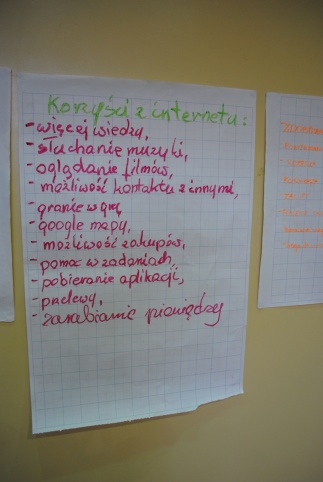 Korzyści z internetu:
- więcej wiedzy,
- słuchanie muzyki,
- oglądanie filmów,
- możliwość kontaktu z innymi,
- granie w grę,
- google mapy,
- możliwość zakupów,
- pomoc w zadaniach,
- pobieranie aplikacji,
- przelewy,
- zarabianie pieniędzy